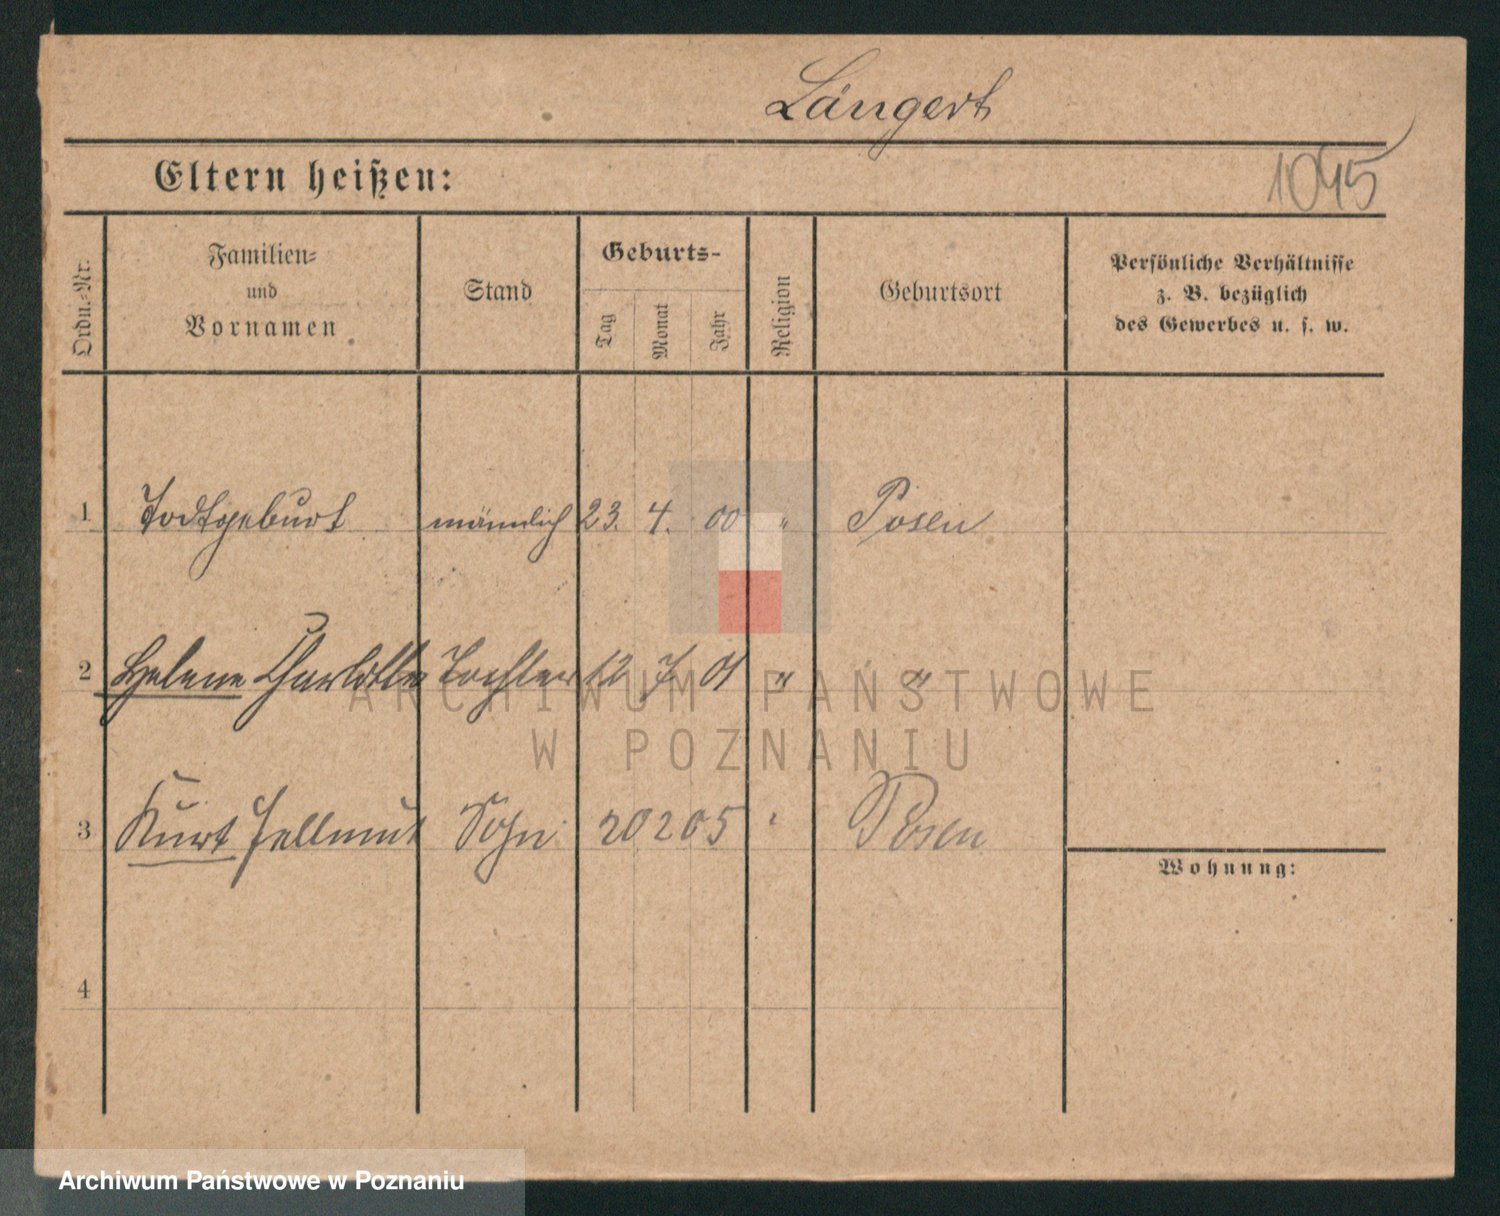 Längert
Eltern heißen:
1045
Ordn.-Nr.
Familien-
und
Vornamen
Stand
Geburts-
Tag
Monat
Jahr
Religion
Geburtsort
Persönliche Verhältnisse
z. B. bezüglich
des Gewerbes u. s. w.
1 Todtgeburt männlich 23. 4. 00 " Posen
2 Helene Charlotte Tochter 12 7 01 " "
ARCHIWUM PAŃSTWOWE
W POZNANIU
3 Kurt Hellmut Sohn 20 2 05 " Posen
Wohnung:
4
Archiwum Państwowe w Poznaniu